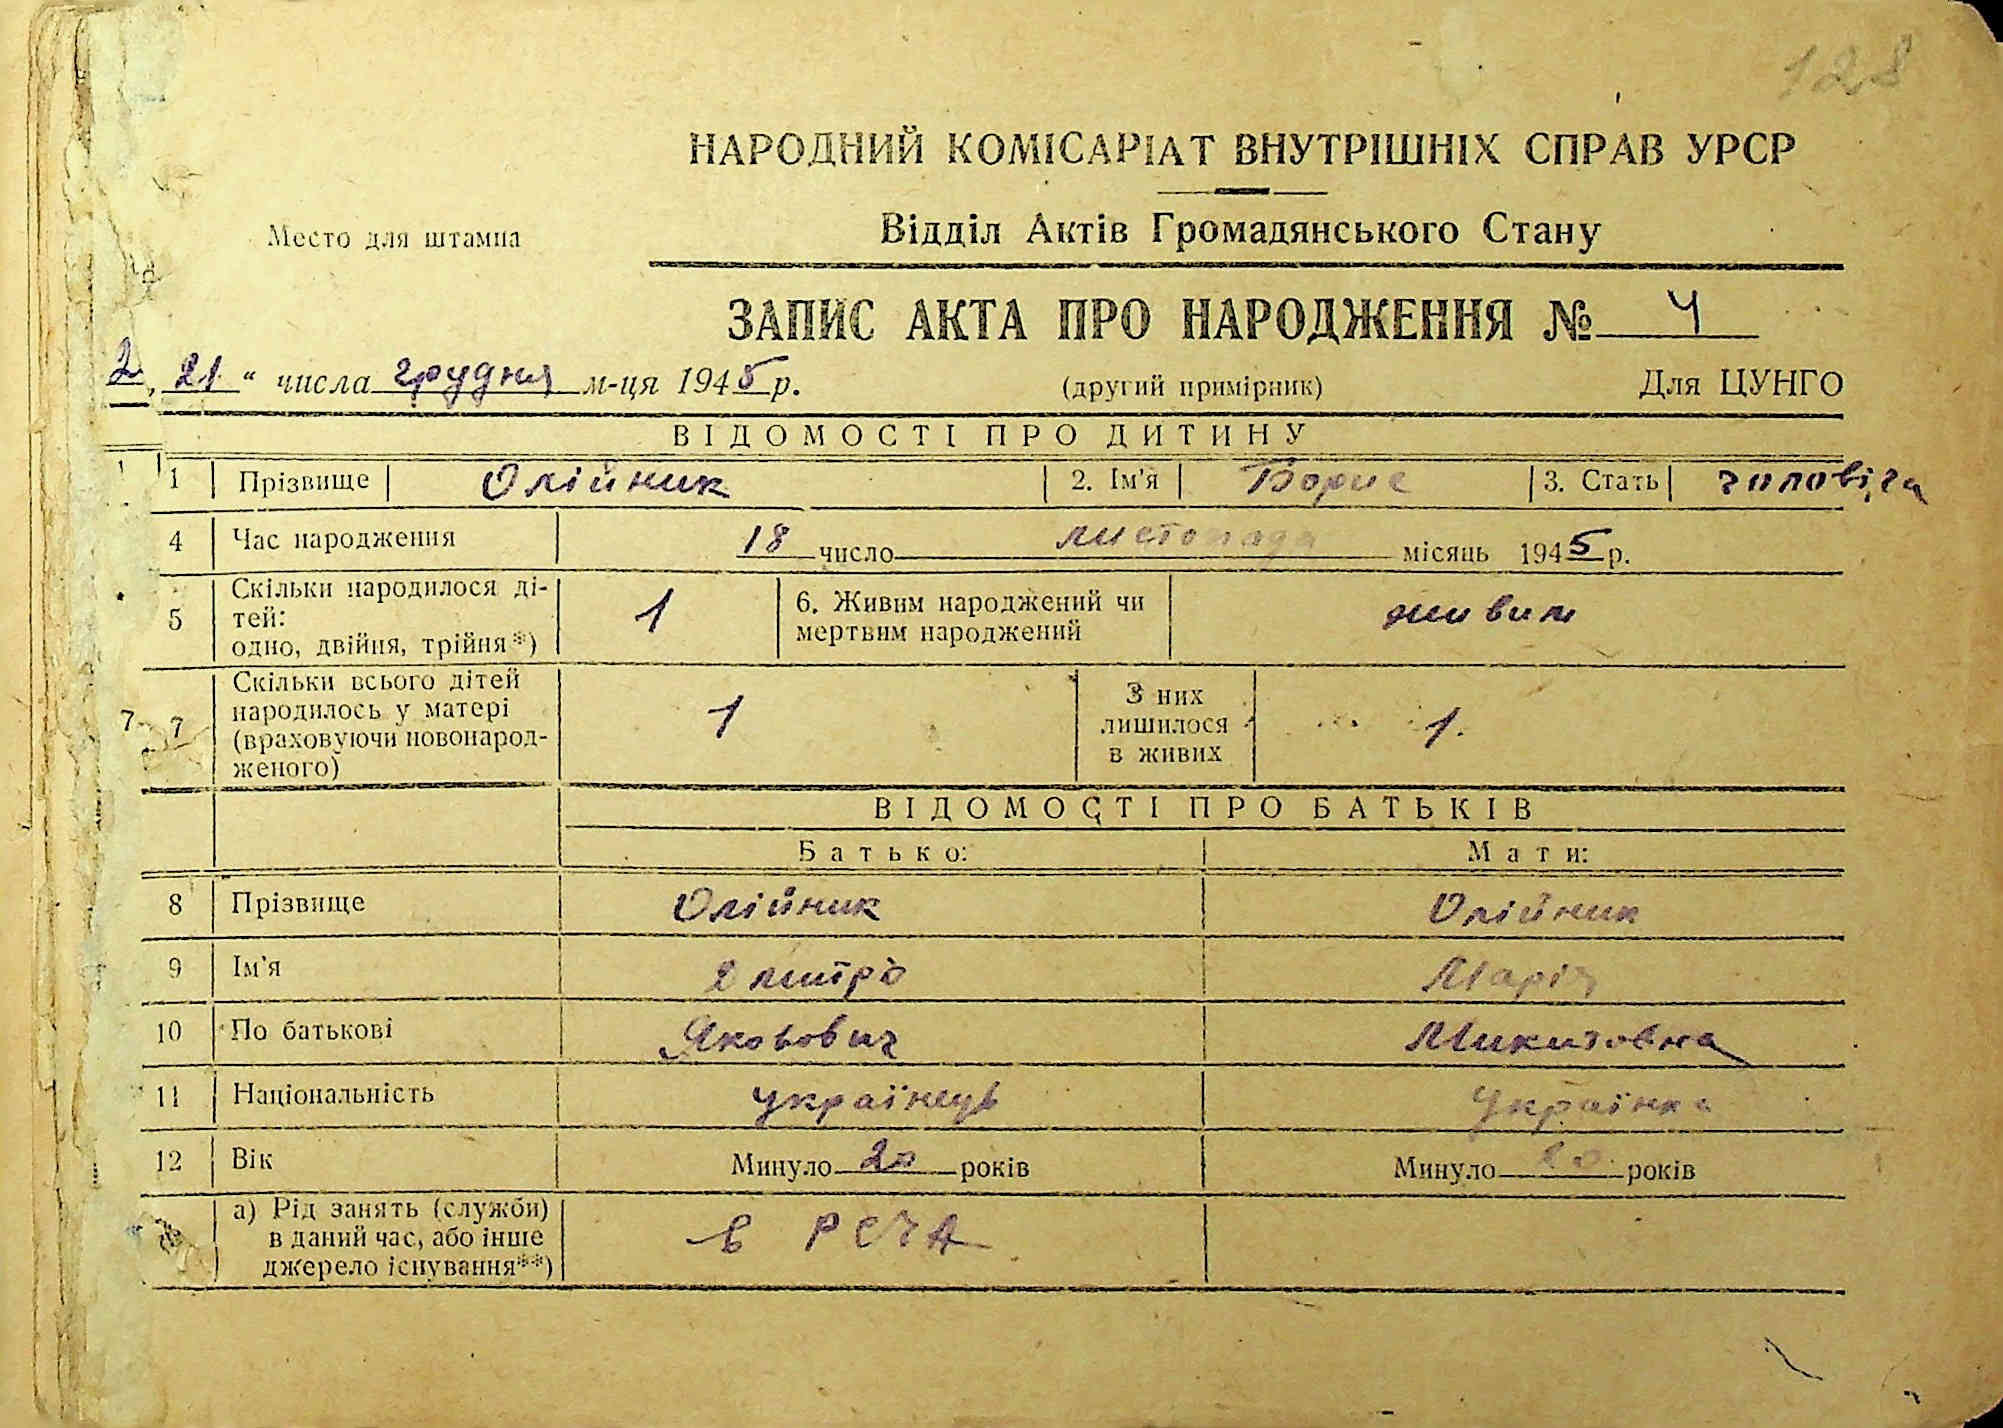 128
НАРОДНИЙ КОМІСАРІАТ ВНУТРІШНІХ СПРАВ УРСР
Место для штампа
Відділ Актів Громадянського Стану
ЗАПИС АКТА ПРО НАРОДЖЕННЯ № 4
2 „21“ числа грудня м-ця 1945 р. (другий примірник) Для ЦУНГО
ВІДОМОСТІ ПРО ДИТИНУ
1 Прізвище Олійник 2. Ім'я Борис 3. Стать чоловіча
4 Час народження 18 число листопада місяць 1945 р.
5 Скільки народилося ді-
тей:
одно, двійня, трійня*) 1 6. Живим народжений чи
мертвим народжений живим
7 7 Скільки всього дітей
народилось у матері
(враховуючи новонарод-
женого) 1 З них
лишилося
в живих 1.
ВІДОМОСТІ ПРО БАТЬКІВ
Батько: Мати:
8 Прізвище Олійник Олійник
9 Ім'я Дмитро Марія
10 По батькові Якович Микитовна
11 Національність українець Українка
12 Вік Минуло 20 років Минуло 20 років
а) Рід занять (служби)
в даний час, або інше
джерело існування**) в РСЧА